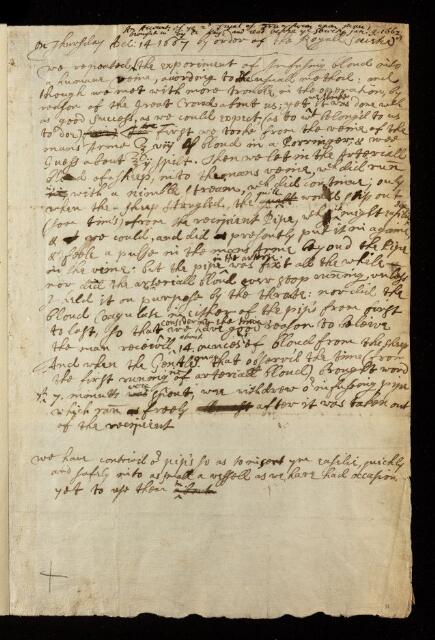 An Account of the 2d Tryal of Transfusion upon man
brought in by Dr King and read before the Society Jan. 1667
On Thursday Dec: 14 1667 by order of the Royal Society
we repeated the experiment of Infusing bloud into
a humane veine, according to the usuall method: and
though we met with more trouble in the operation, by
reason of the Great Croud about us; yet it was done with
as good success, as we could expect (as to wt belong'd to us
to doe). First we tooke from the veine of the
mans Arme bloud in a Porringer, & more
Guess about spilt. Then we let in the Arteriall
bloud of sheep, into the mans veine, wch did run
with a nimble streame, wch did continue; only
when the sheep strugled, the would slip out
(some times) from the recipient Pipe, wch might
we could, and did presently put it on againe,
& feele a pulse in the mans Arme beyond the Pipe
in the veine: but the pipe in the arterie was fixt all the while
nor did the arteriall bloud ever stop running, unless
I did it on purpose by the thread: nor did the
bloud Coagulate in either of the pipes from first
to last, so that considering the time we have good reason to beleive
the man received about 14 ounces of bloud from the sheep
And when the Gentlemen that observed the time (from
the first running of arteriall bloud) brought word
yt 7 monutts was spent, wee withdrew or infusing pype
which ran freely after it was taken out
of the recipient
we have contrived or pipes so as to insert ym easilie, quickly
and safely into as small a vessell as we have had occasion
yet to use them in